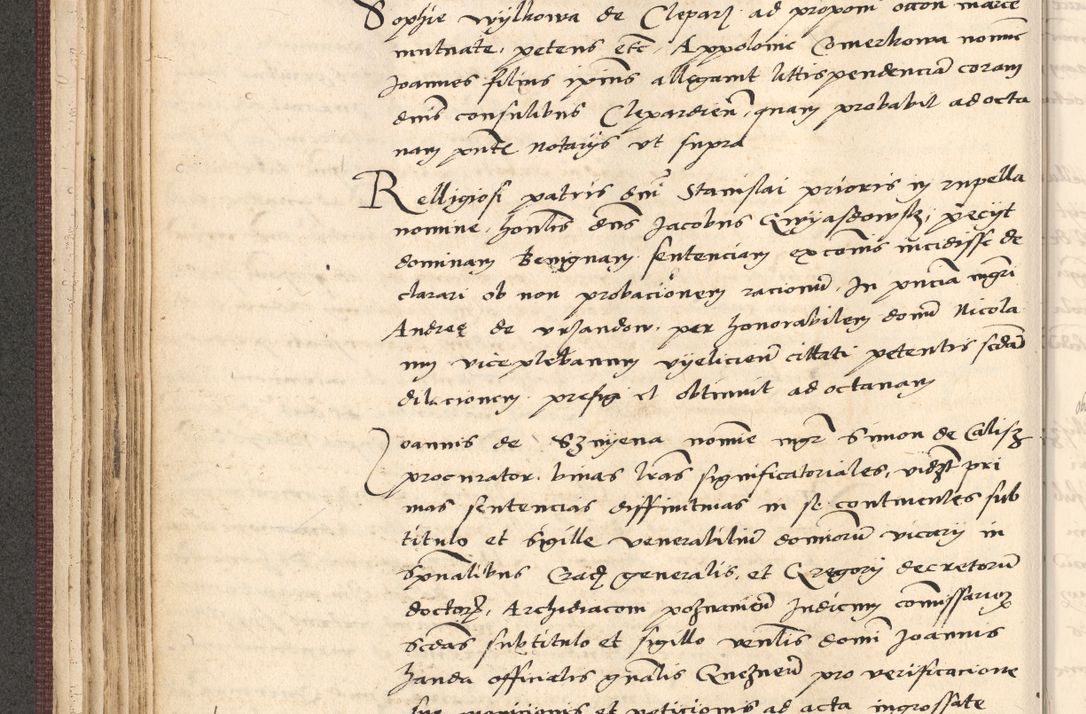 Sophie wylkowa de Cleparz ad proponi octon marce
mutuate, petens etc, Appolonie Comerkowa nomine
Joannes filius ipius allegavit littispendenciam coram
dnis consulibus Clepardien, quam probabit ad octa
nam pnte notarys ut supra
Relligiosi patris dni Stanislai prioris in rupella
nomine, honlis dns Jacobus Gwyasdowsky, pecyt
dominam Benignam sentenciam excomis incidisse de
clarari ob non probacionem racionum, In pncia mgri
Andree de urzandow, per honorabilem domnu Nicola
um viceplebanum vyelicien cittati petentis scdam
dilacionem prefigi et obtinuit ad octanam
Joannis de Szmyena nomine mgr Simon de Calisz
procurator, binas lras significatoriales, vidzt pri
mas sentencias diffinitivas in se continentes sub
titulo et sigille venerabilium dominorum vicary in
spualibus Crac generalis, et Gregory decretorum
doctorz, Archidiaconi poznanien Judicum commissarioz
scdas subtitulo et sigillo venlis domi Joannis
handa officialis gnalis Gneznen pro verificacione
sue proposicionis et peticionis ad acta ingrossate